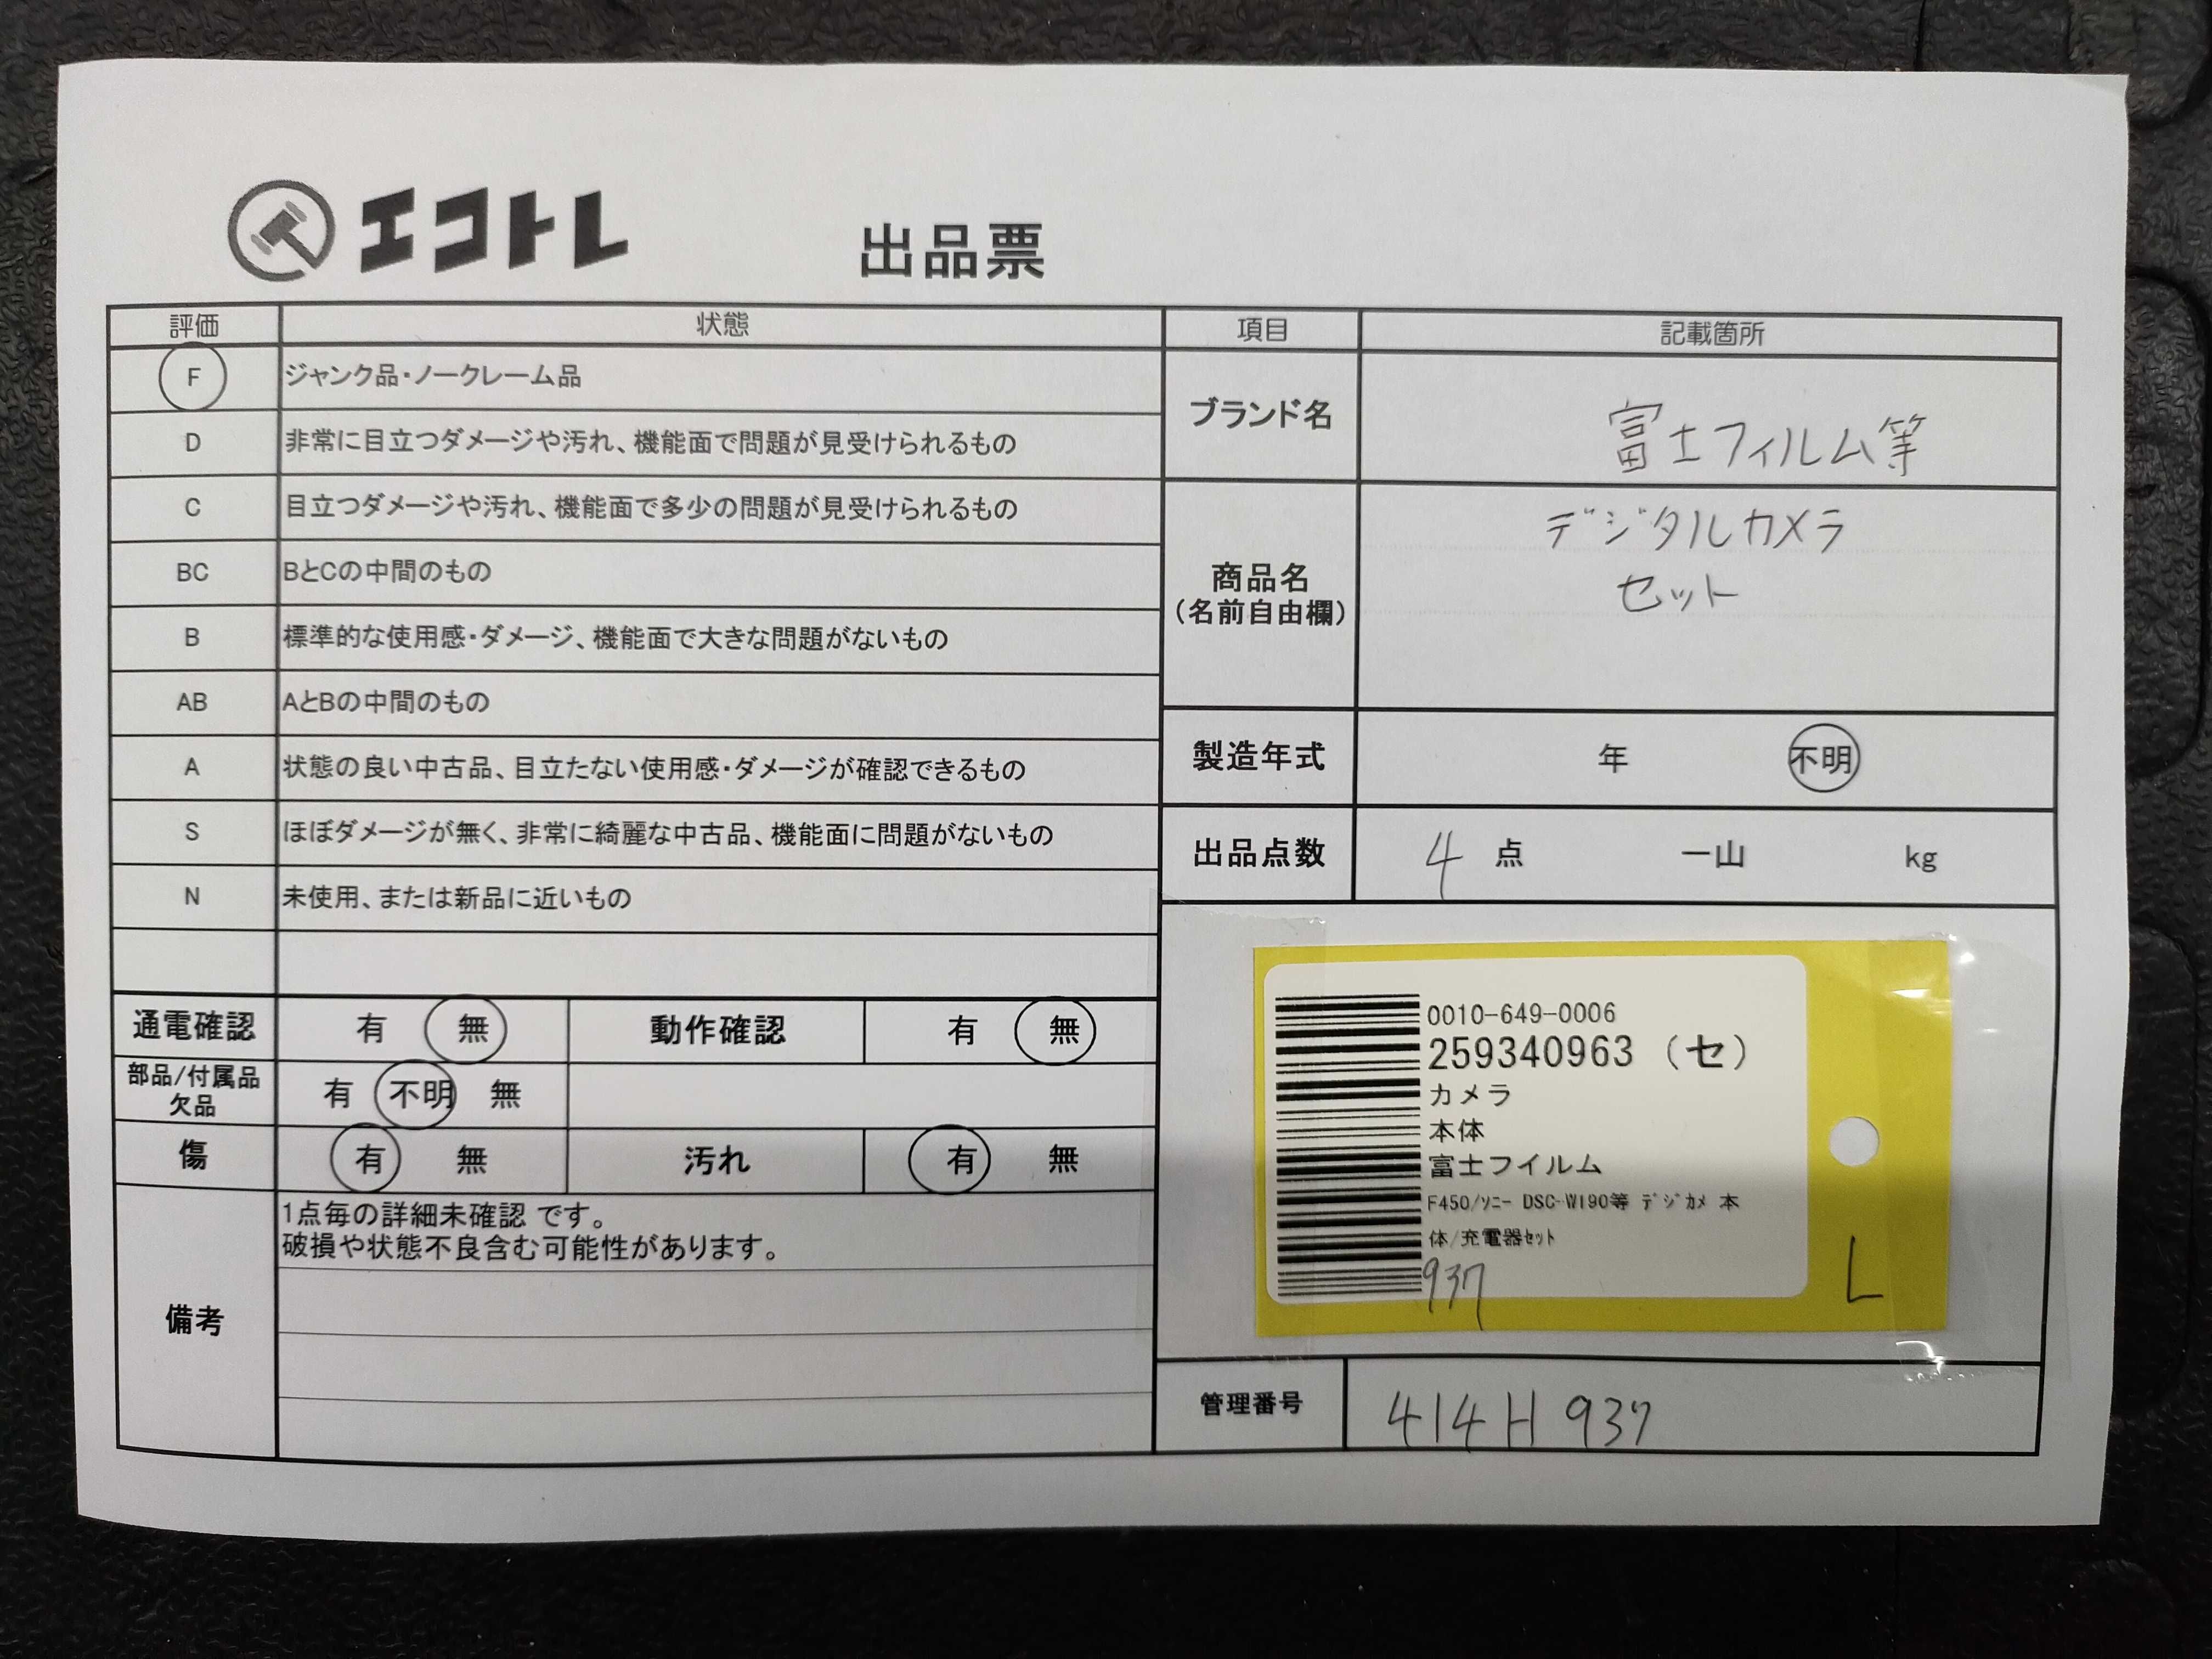 エコトレ
出品票
評価 状態
F ジャンク品・ノークレーム品
D 非常に目立つダメージや汚れ、機能面で問題が見受けられるもの
C 目立つダメージや汚れ、機能面で多少の問題が見受けられるもの
BC BとCの中間のもの
B 標準的な使用感・ダメージ、機能面で大きな問題がないもの
AB AとBの中間のもの
A 状態の良い中古品、目立たない使用感・ダメージが確認できるもの
S ほぼダメージが無く、非常に綺麗な中古品、機能面に問題がないもの
N 未使用、または新品に近いもの
通電確認 有 無 動作確認 有 無
部品/付属品
欠品 有 不明 無
傷 有 無 汚れ 有 無
備考
1点毎の詳細未確認 です。
破損や状態不良含む可能性があります。
項目 記載箇所
ブランド名 富士フィルム等
商品名
(名前自由欄)
デジタルカメラ
セット
製造年式 年 不明
出品点数 4 点 一山 kg
0010-649-0006
259340963 (セ)
カメラ
本体
富士フイルム
F450/ｿﾆｰ DSC-W190等 ﾃﾞｼﾞｶﾒ 本
体/充電器ｾｯﾄ
937
L
管理番号 414H 937